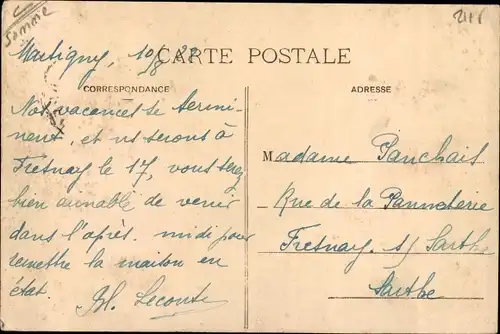 Somme
Martigny, 10/8
CARTE POSTALE
CORRESPONDANCE
ADRESSE
Nos vacances se termi-
nent, et ns serons à
Fresnay le 17, vous serez
bien aimable de venir
dans l'après-midi pour
remettre la maison en
état. Leconte
Madame Panchais
Rue de la
Fresnay s/ Sarthe
Sarthe